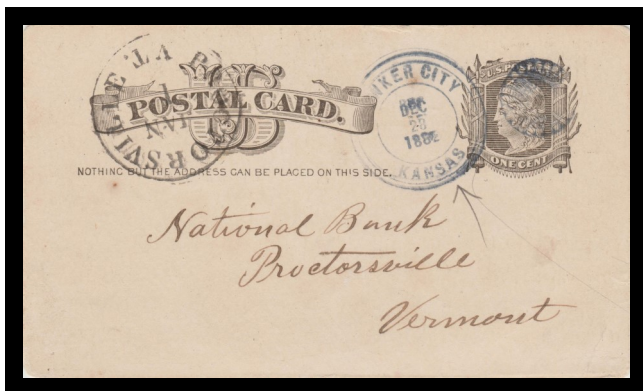 POSTAL CARD.
NOTHING BUT THE ADDRESS CAN BE PLACED ON THIS SIDE.
KER CITY
DEC
20
1882
KANSAS
U.S. POSTAGE
ONE CENT
JAN
1
National Bank
Proctorsville
Vermont